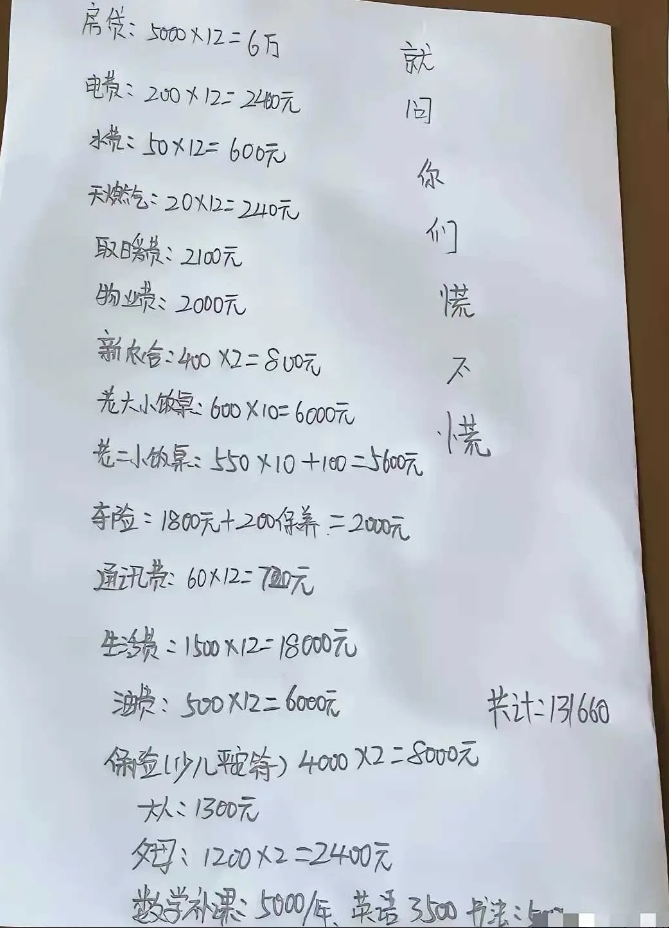 房贷：5000×12=6万
电费：200×12=2400元
水费：50×12=600元
天燃气：20×12=240元
取日暖费：2100元
物业费：2000元
新农合：400×2=800元
老大小饭桌：600×10=6000元
老二小饭桌：550×10+100=5600元
车险：1800元+200保养=2000元
通讯费：60×12=720元
生活费：1500×12=18000元
油费：500×12=6000元
保险(少儿平安等) 4000×2=8000元
大人：1300元
父母：1200×2=2400元
数学补课：5000/年、英语3500 书法：
就
问
你
们
慌
不
慌
共计：131660